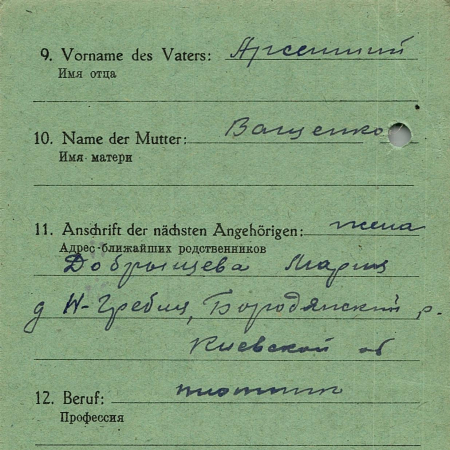 9. Vorname des Vaters: Арсентий
Имя отца
10. Name der Mutter: Ващенко
Имя матери
11. Anschrift der nächsten Angehörigen: жена
Адрес ближайших родственников
Добрынцева Мария
д Н-Гребля, Бородянский р.
Киевской об
12. Beruf: плотник
Профессия